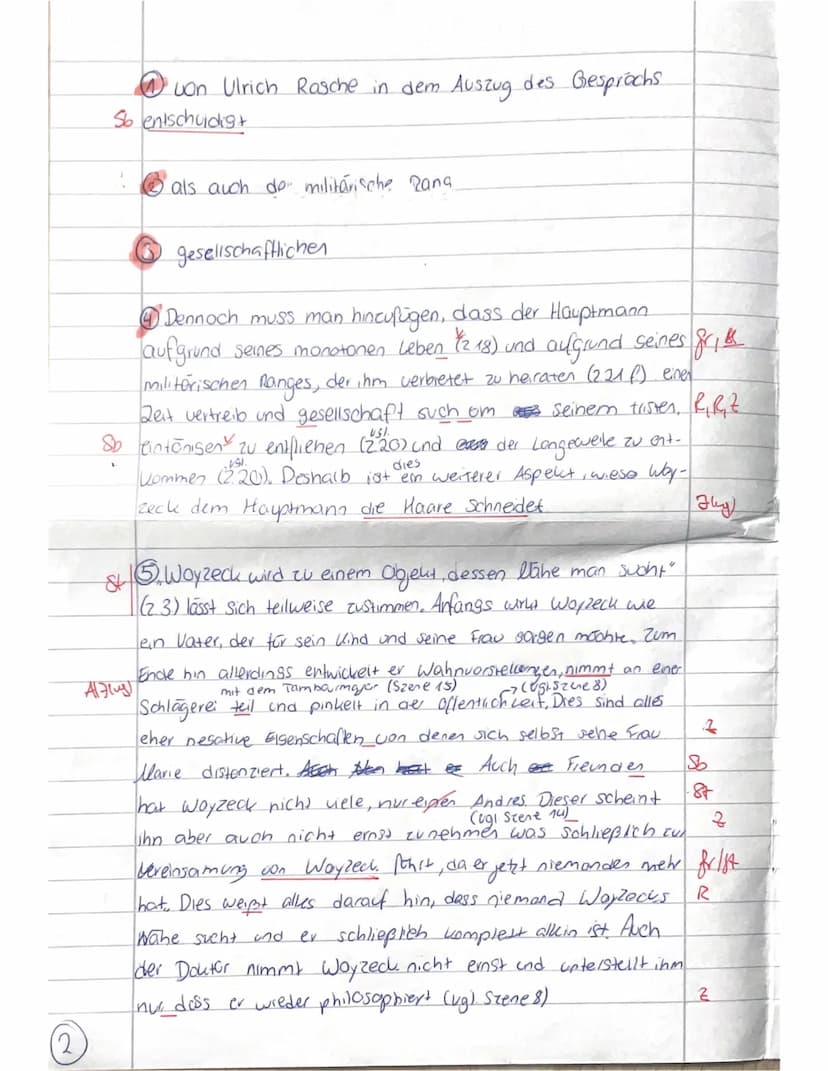 ① von Ulrich Rasche in dem Auszug des Gesprächs
Sb entschuldigt
② als auch der militärische Rang
③ gesellschaftlichen
④ Dennoch muss man hinzufügen, dass der Hauptmann
aufgrund seines monotonen Leben (Z 18) und aufgrund seines gr,
militärischen Ranges, der ihm verbietet zu heiraten (Z21f) einen
Zeit vertreib und gesellschaft such om seinem tristen, R, R, Z
Sb eintönigen zu entfliehen (vgl. Z20) und der Langeweile zu ent-
kommen (vgl. Z20). Deshalb ist dies ein weiterer Aspekt, wieso Woy-
zeck dem Hauptmann die Haare schneidet.
St ⑤ „Woyzeck wird zu einem Objekt, dessen Nähe man sucht"
(Z 3) lässt sich teilweise zustimmen. Anfangs wirkt Woyzeck wie
ein Vater, der für sein Kind und seine Frau sorgen möchte. Zum
Ende hin allerdings entwickelt er Wahnvorstellungen, nimmt an einer
mit dem Tambourmajor (Szene 15) → (vgl. Szene 8)
Schlägerei teil und pinkelt in der öffentlichkeit. Dies sind alles
eher negative Eigenschaften von denen sich selbst sehe Frau Z
Marie distanziert. Auch Freunden Sb
hat Woyzeck nicht viele, nur einen Andres. Dieser scheint St
(vgl Szene 14)
ihn aber auch nicht ernst zu nehmen was schließlich zur Z
Vereinsamung von Woyzeck führt, da er jetzt niemanden mehr gr/St
hat. Dies weißt alles darauf hin, dass niemand Woyzecks R
Nähe sucht und er schließlich komplett allein ist. Auch
der Doktor nimmt Woyzeck nicht ernst und unterstellt ihm
nur dass er wieder philosophiert (vgl Szene 8) Z
2